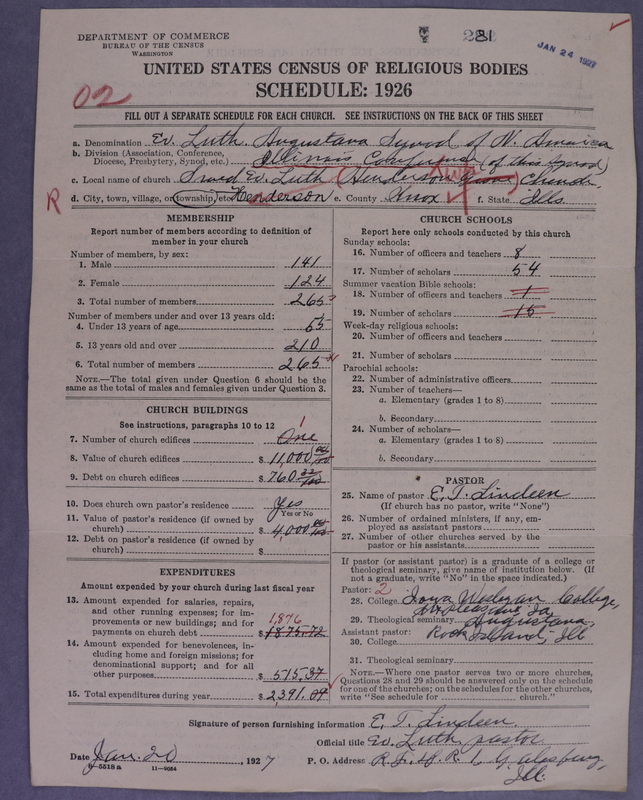 DEPARTMENT OF COMMERCE
BUREAU OF THE CENSUS
WASHINGTON
281
JAN 24 1927
UNITED STATES CENSUS OF RELIGIOUS BODIES
SCHEDULE: 1926
02
FILL OUT A SEPARATE SCHEDULE FOR EACH CHURCH. SEE INSTRUCTIONS ON THE BACK OF THIS SHEET
a. Denomination Ev. Luth. Augustana Synod of N. America
b. Division (Association, Conference, Diocese, Presbytery, Synod, etc.) Illinois Conference (of this Synod)
c. Local name of church Swed Ev. Luth (Henderson Grove) Church
R
d. City, town, village, or township, etc. Henderson e. County Knox f. State Ills.
MEMBERSHIP
Report number of members according to definition of member in your church
Number of members, by sex:
1. Male 141
2. Female 124
3. Total number of members 265
Number of members under and over 13 years old:
4. Under 13 years of age 55
5. 13 years old and over 210
6. Total number of members 265
NOTE.—The total given under Question 6 should be the same as the total of males and females given under Question 3.
CHURCH BUILDINGS
See instructions, paragraphs 10 to 12
7. Number of church edifices One 1
8. Value of church edifices $ 11,000 00/100
9. Debt on church edifices $ 760 33/100
10. Does church own pastor's residence Yes
Yes or No
11. Value of pastor's residence (if owned by church) $ 4,000 00/100
12. Debt on pastor's residence (if owned by church) $
EXPENDITURES
Amount expended by your church during last fiscal year
13. Amount expended for salaries, repairs, and other running expenses; for improvements or new buildings; and for payments on church debt $ 1875.72 1,876
14. Amount expended for benevolences, including home and foreign missions; for denominational support; and for all other purposes $ 515.37
15. Total expenditures during year $ 2,391.09
CHURCH SCHOOLS
Report here only schools conducted by this church
Sunday schools:
16. Number of officers and teachers 8
17. Number of scholars 54
Summer vacation Bible schools:
18. Number of officers and teachers 1
19. Number of scholars 15
Week-day religious schools:
20. Number of officers and teachers
21. Number of scholars
Parochial schools:
22. Number of administrative officers
23. Number of teachers—
a. Elementary (grades 1 to 8)
b. Secondary
24. Number of scholars—
a. Elementary (grades 1 to 8)
b. Secondary
PASTOR
25. Name of pastor E. T. Lindeen
(If church has no pastor, write "None")
26. Number of ordained ministers, if any, employed as assistant pastors
27. Number of other churches served by the pastor or his assistants
If pastor (or assistant pastor) is a graduate of a college or theological seminary, give name of institution below. (If not a graduate, write "No" in the space indicated.)
Pastor: 2
28. College Iowa Wesleyan College, Mt. Pleasant, Ia.
29. Theological seminary Augustana,
Assistant pastor: Rock Island, Ill
30. College
31. Theological seminary
NOTE.—Where one pastor serves two or more churches, Questions 28 and 29 should be answered only on the schedule for one of the churches; on the schedules for the other churches, write "See schedule for church."
Signature of person furnishing information E. T. Lindeen
Official title Ev. Luth pastor
Date Jan. 20, 1927
P. O. Address Galesburg, Ill.
8—5518 a 11—9084